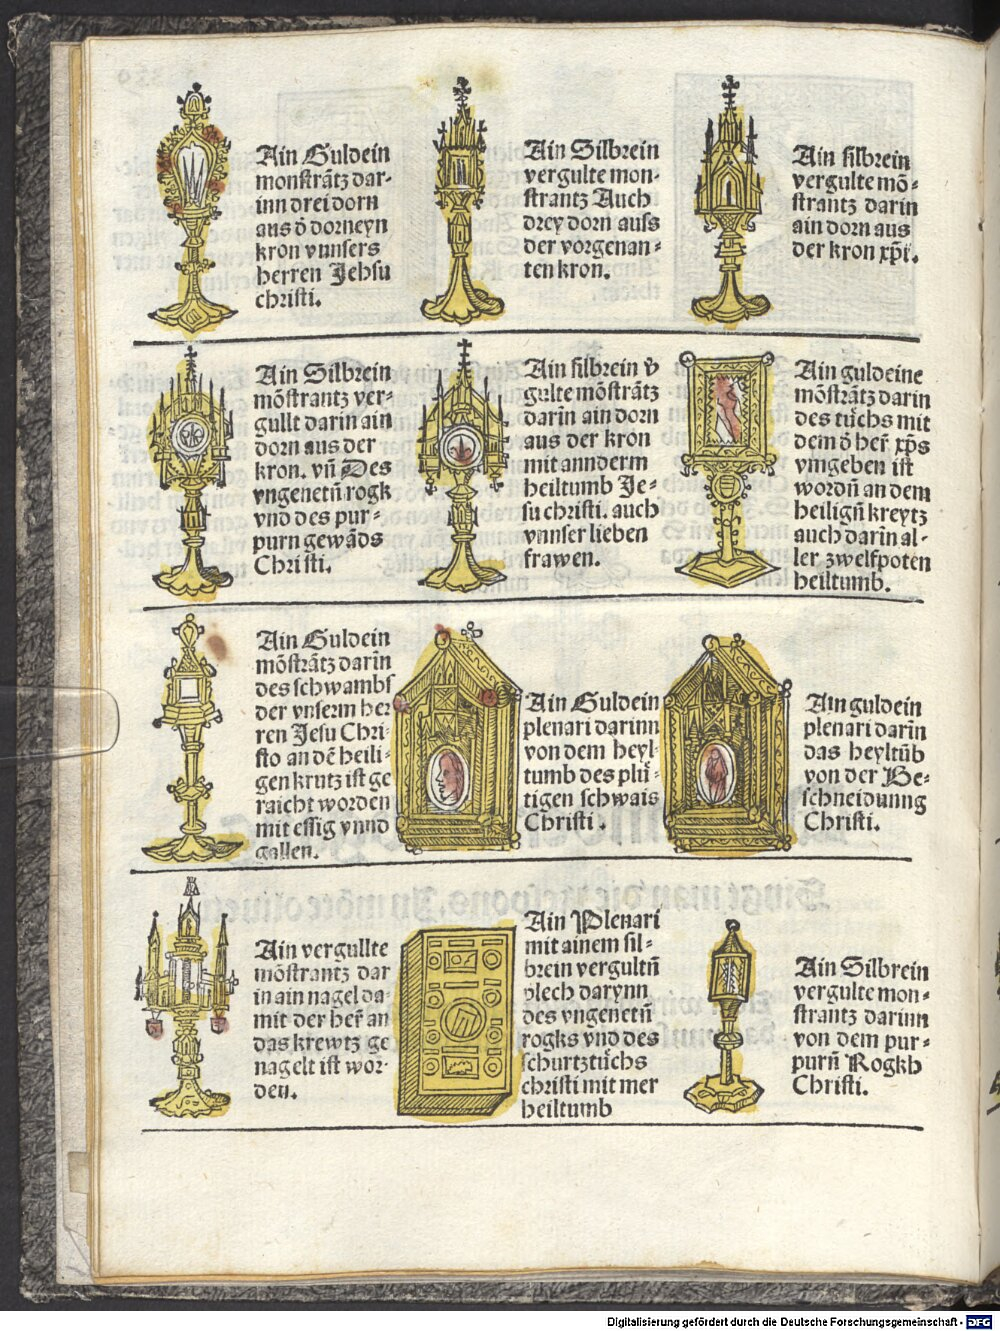 Ain Guldein
monstrãtz dar-
inn drei dorn
aus õ dorneyn
kron vunsers
herren Jehsu
christi.
Ain Silbrein
vergulte mon-
strantz Auch
drey dorn auss
der vorgenan-
ten kron.
Ain silbrein
vergulte mõ-
strantz darin
ain dorn aus
der kron xp̃i.
Ain Silbrein
mõstrantz ver-
gullt darin ain
dorn aus der
kron. vñ Des
vngenetñ rogk
vnd des pur-
purn gewãds
Christi.
Ain silbrein v̈
gulte mõstrãtz
darin ain dorn
aus der kron
mit annderm
heiltumb Je-
su christi. auch
vnnser lieben
frawen.
Ain guldeine
mõstrãtz darin
des tůchs mit
dem õ her̃ xp̃s
vmgeben ist
wordñ an dem
heiligñ kreytz
auch darin al-
ler zwelfpoten
heiltumb.
Ain Guldein
mõstrãtz darĩn
des schwambs
der vnserm her
ren Jesu Chri-
sto an dẽ heili-
gen krutz ist ge
raicht worden
mit essig vnnd
gallen.
Ain Guldein
plenari darinn
von dem heyl-
tumb des plů-
tigen schwais
Christi.
Ain guldein
plenari darĩn
das heyltũb
von der Be-
schneidunng
Christi.
Ain vergullte
mõstrantz dar
in ain nagel da-
mit der her̃ an
das krewtz ge
nagelt ist wor-
den.
Ain Plenari
mit ainem sil-
brein vergultñ
plech darynn
des vngenetñ
rogks vnd des
schurtztůchs
christi mit mer
heiltumb
Ain Silbrein
vergulte mon-
strantz darinn
von dem pur-
purñ Rogkh
Christi.
Digitalisierung gefördert durch die Deutsche Forschungsgemeinschaft - DFG